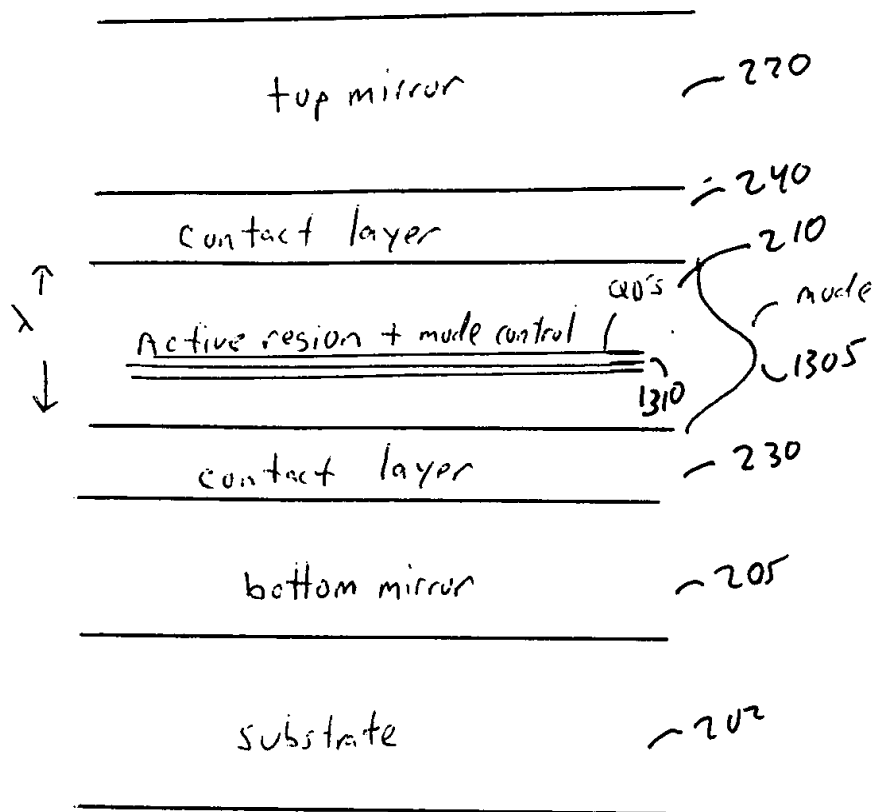 top mirror 220
240
contact layer
210
λ
QD's
mode
Active region + mode control
1310
1305
contact layer 230
bottom mirror 205
substrate 202